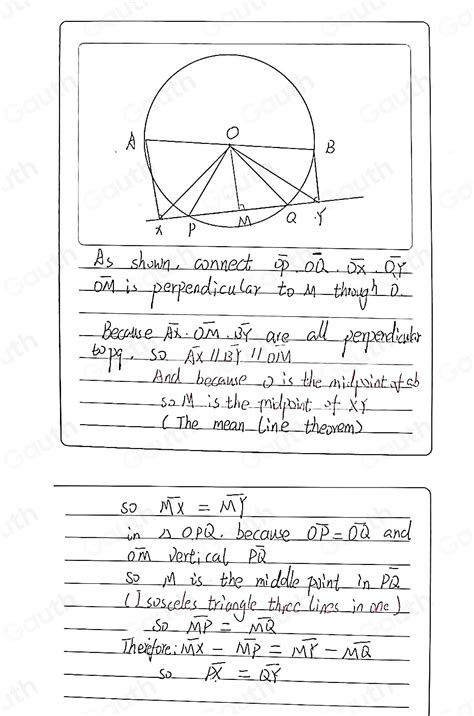 A
O
B
X
P
M
Q
Y
As shown, connect OP. OQ. OX. OY
OM is perpendicular to M through O.
Because AX. OM. BY are all perpendicular
to pq, so AX // BY // OM
And because O is the midpoint of ab
so M is the midpoint of XY
(The mean line theorem)
so MX = MY
in △ OPQ. because OP = OQ and
OM vertical PQ
so M is the middle point in PQ
(Isosceles triangle three lines in one)
so MP = MQ
Therefore: MX - MP = MY - MQ
so PX = QY